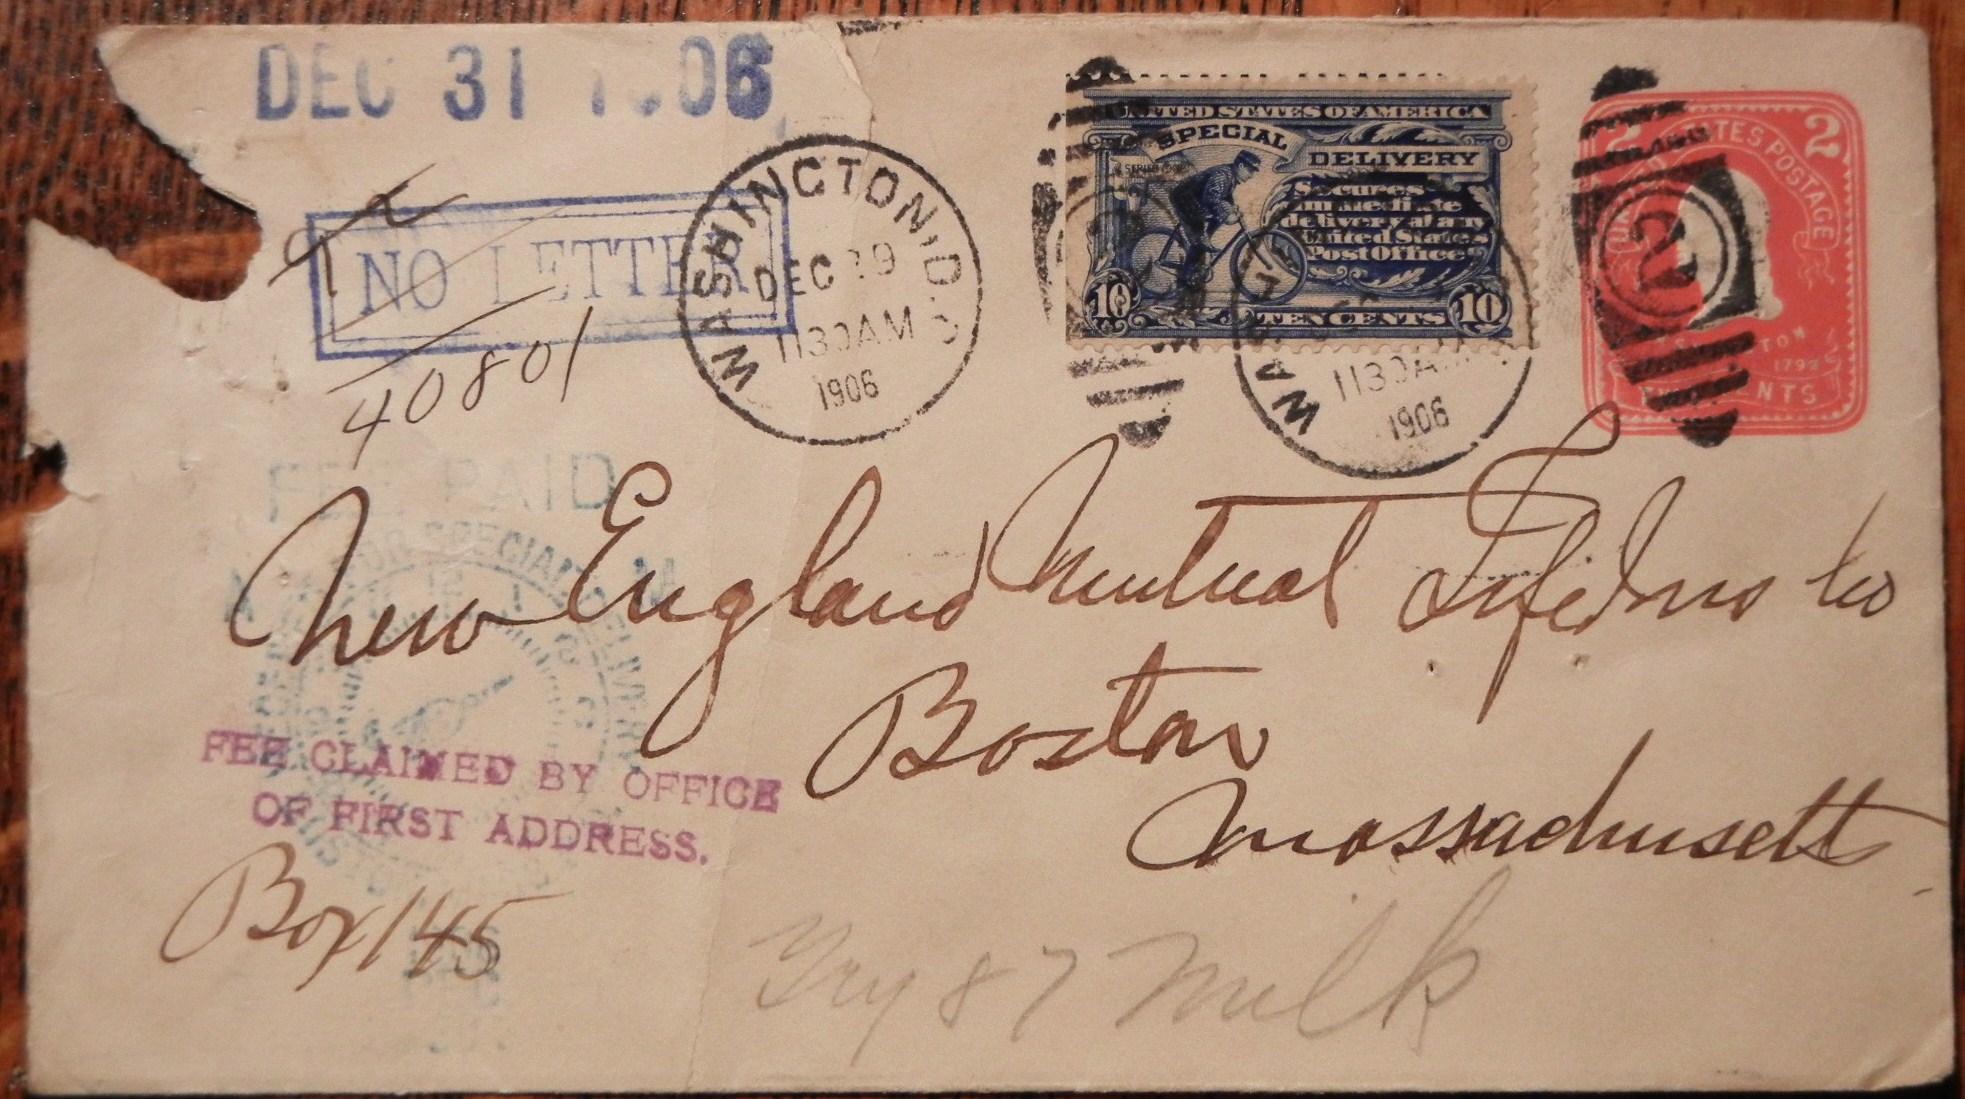 DEC 31 1906
NO LETTER
40801
WASHINGTON, D.C.
DEC 29
1130 AM
1906
UNITED STATES OF AMERICA
SPECIAL
DELIVERY
Secures
immediate
delivery at any
United States
Post Office
10 TEN CENTS 10
WASHINGTON
1130 AM
1906
2 UNITED STATES POSTAGE 2
2
WASHINGTON
1799
TWO CENTS
FEE PAID
FOR SPECIAL DELIVERY
12 1
New England Mutual Life Ins Co
Boston
Massachusetts
FEE CLAIMED BY OFFICE
OF FIRST ADDRESS.
Box 145
Try 87 Milk